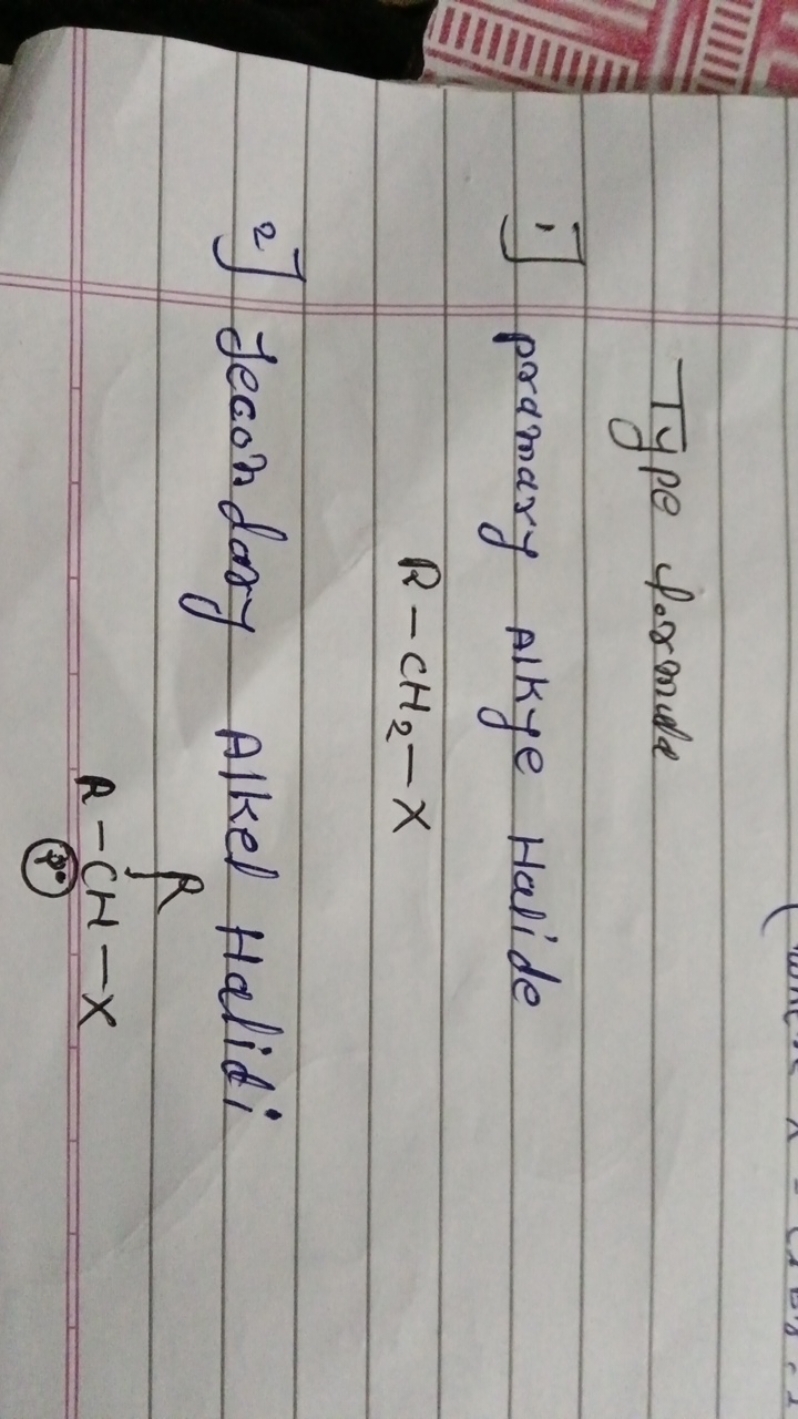 Type formula
1] prdmary Alkye Halide
R-CH2-X
2] Secondary Alkel Halidi
R
R-CH-X